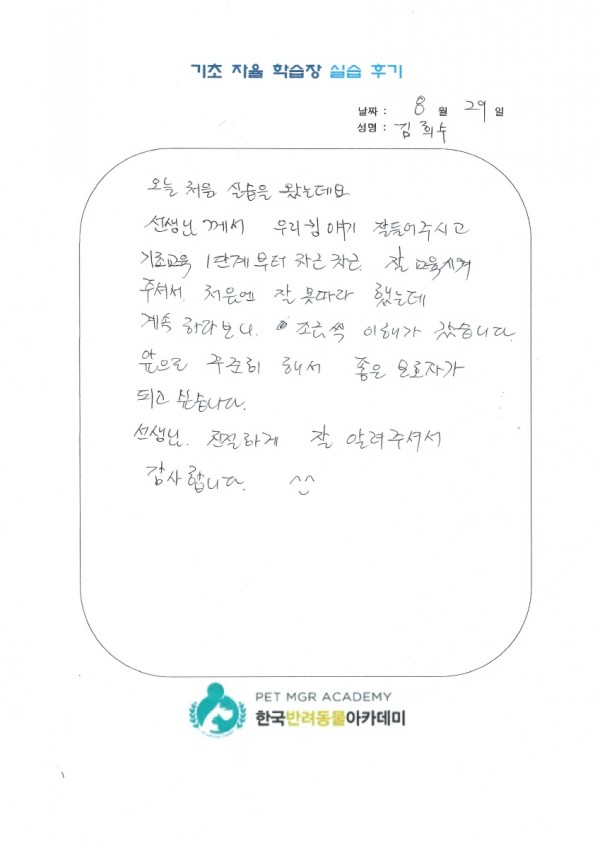 기초 자율 학습장 실습 후기
날짜 : 8 월 29 일
성명 : 김희수
오늘 처음 실습을 왔는데요
선생님께서 우리 얘기 잘들어주시고
기초교육 1단계부터 차근 차근. 잘 교육시켜
주셔서. 처음엔 잘 못따라 했는데
계속 하다보니. 조금씩 이해가 갔습니다.
앞으로 꾸준히 해서 좋은 보호자가
되고 싶습니다.
선생님. 친절하게 잘 알려주셔서
감사합니다. ^^
PET MGR ACADEMY
한국반려동물아카데미